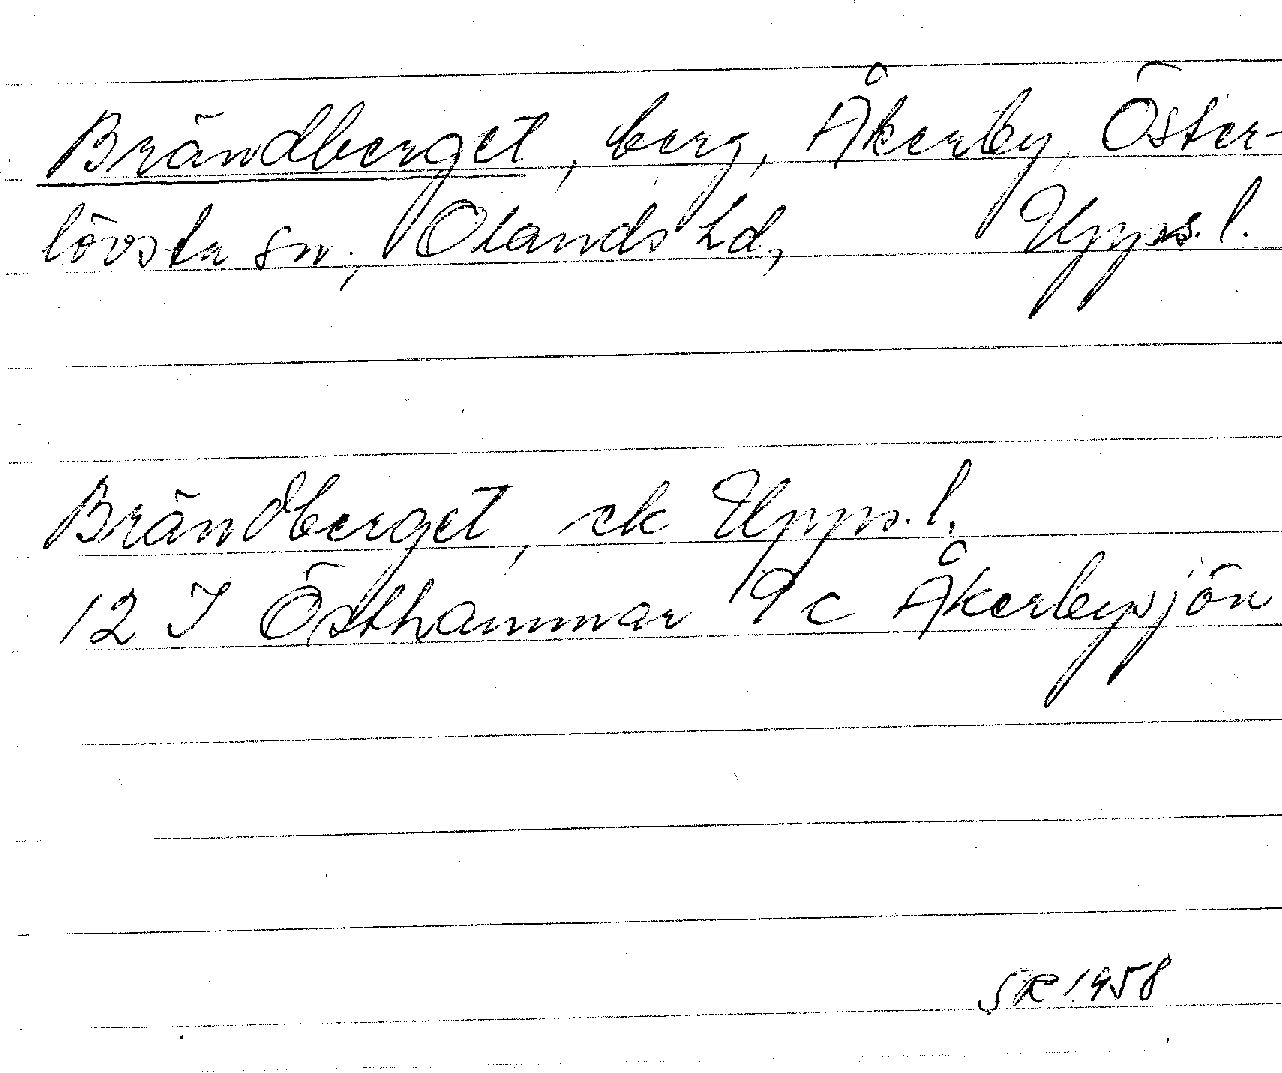 Brändberget, berg, Åkerby, Öster-
lövsta sn., Olands hd, Upps.l.
Brändberget, ek Upps.l.
12 I Östhammar 9c Åkerbysjön
SR 1958